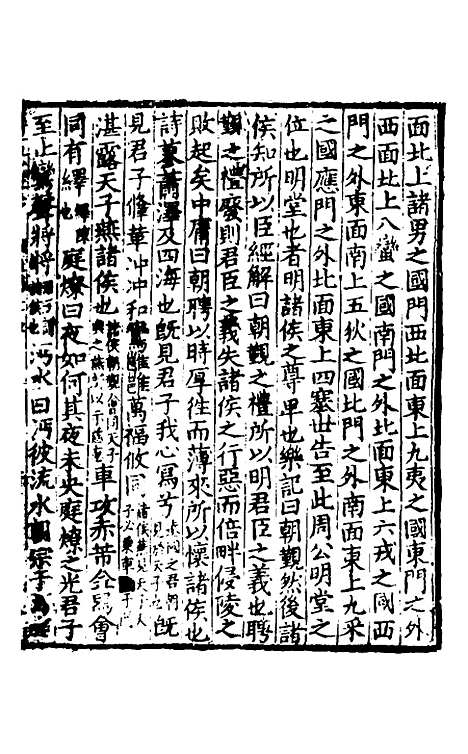 面北上諸男之國門西北面東上九夷之國東門之外
西面北上八蠻之國南門之外北面東上六戎之國西
門之外東面南上五狄之國北門之外南面東上九采
之國應門之外北面東上四塞世告至此周公明堂之
位也明堂也者明諸侯之尊卑也樂記曰朝覲然後諸
侯知所以臣經解曰朝覲之禮所以明君臣之義也聘
覲之禮廢則君臣之義失諸侯之行惡而倍畔侵陵之
敗起矣中庸曰朝聘以時厚徃而薄來所以懷諸侯也
詩蓼蕭澤及四海也旣見君子我心寫兮 旣
見君子鞗革冲冲和鸞雝雝萬福攸同
湛露天子燕諸侯也諸侯朝覲會同天子與之燕所以示慈惠車攻赤芾金舄會
同有繹繹陳也庭燎曰夜如何其夜未央庭燎之光君子
至止鸞聲將將沔水曰沔彼流水朝宗于